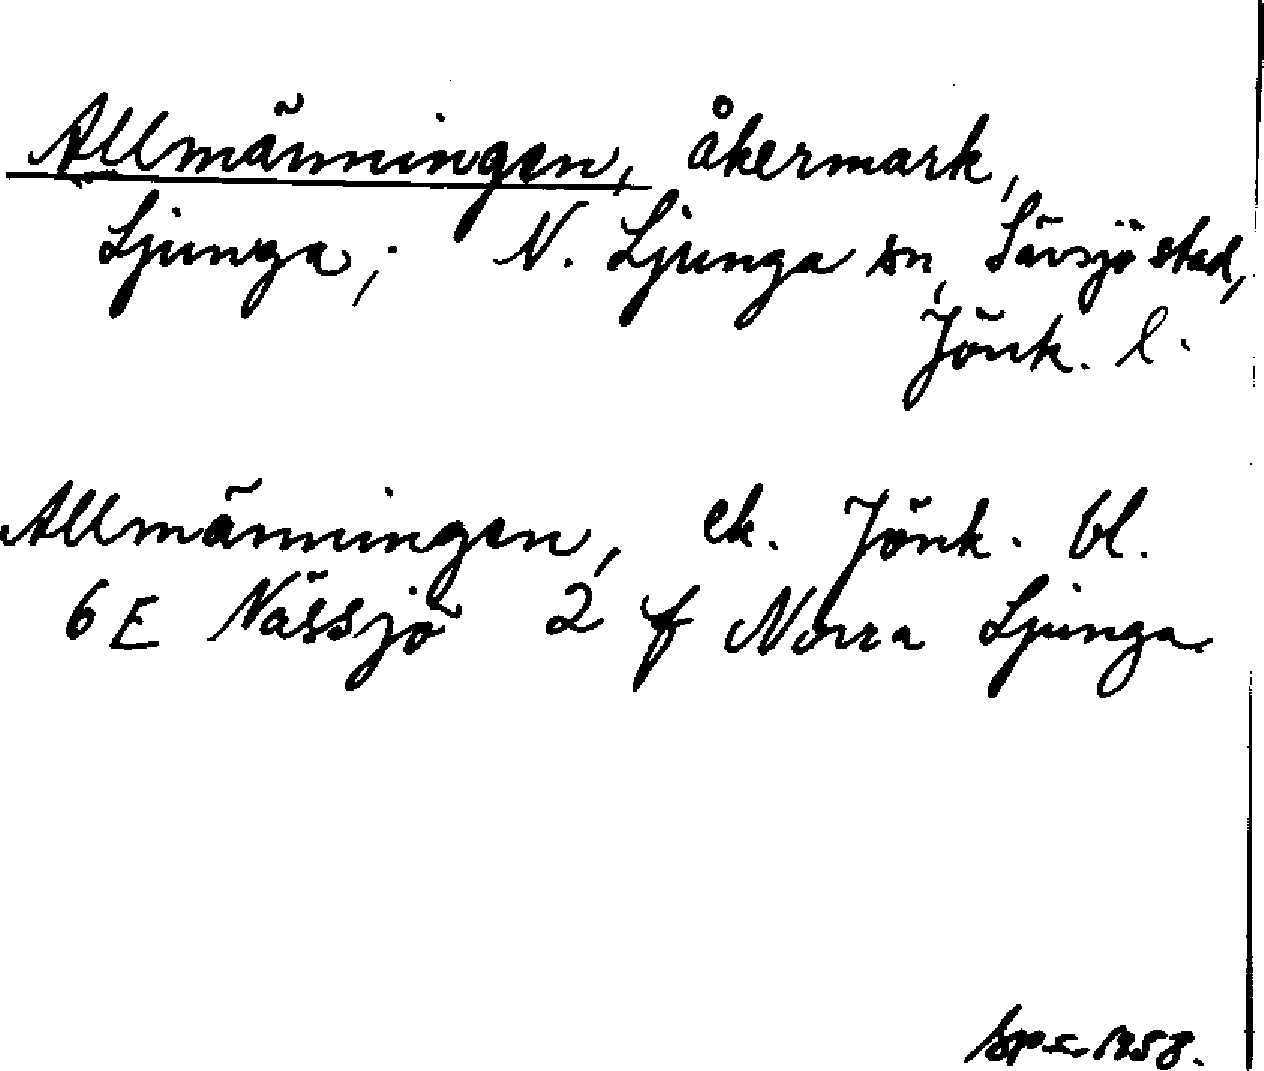 Allmänningen, åkermark,
Ljunga; N. Ljunga sn, Sävsjö stad,
Jönk. l.
Allmänningen, ek. Jönk. bl.
6E Nässjö 2 f Norra Ljunga
1958.